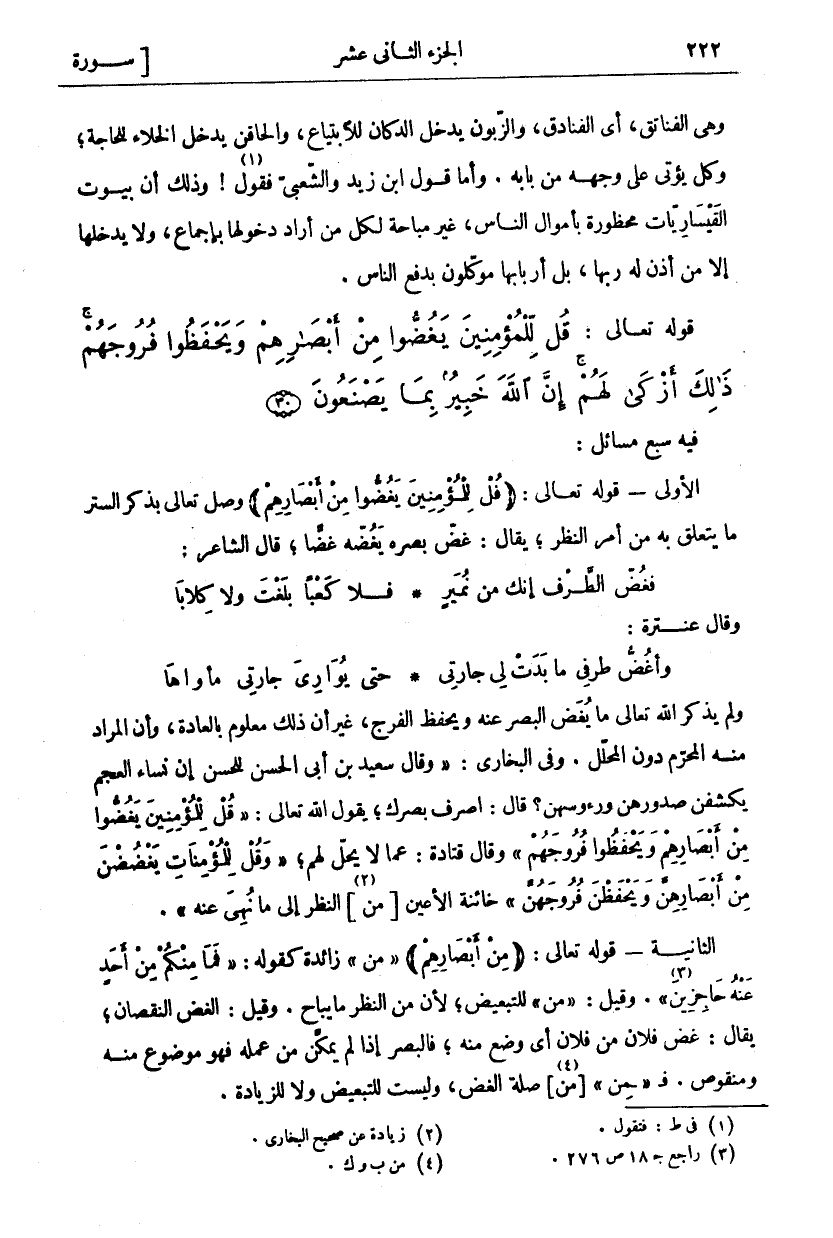 ٢٢٢ الجزء الثانى عشر [ سـورة
وهى الفناتق، أى الفنادق، والزّبون يدخل الدكان للأبتياع، والحاقن يدخل الخلاء للحاجة؛
وكل يؤتى على وجهـه من بابه . وأما قـول ابن زيد والشّعبىّ فقول (١) ! وذلك أن بيـوت
القَيْسَارِيّات محظورة بأموال النـاس، غير مباحة لكل من أراد دخولها بإجماع، ولا يدخلها
إلا من أذن له ربها، بل أربابها موكّلون بدفع الناس .
قوله تعـالى : قُل لِّلْمُؤْمِنِينَ يَغُضُّوا مِنْ أَبْصَـٰرِهِمْ وَيَحْفَظُوا فُرُوجَهُمْ ۚ
ذَٰلِكَ أَزْكَىٰ لَهُمْ ۚ إِنَّ ٱللَّهَ خَبِيرٌۢ بِمَـا يَصْنَعُونَ ٣٠
فيه سبع مسائل :
الأولى — قوله تعـالى : ﴿قُلْ لِلْمُـؤْمِنِينَ يَغُضُّوا مِنْ أَبْصَارِهِمْ﴾ وصل تعالى بذكر الستر
ما يتعلق به من أمر النظر ؛ يقال : غضّ بصره يَغُضّه غضًّا ؛ قال الشاعر :
فغُضّ الطَّـرْف إنك من نُمَيرٍ * فـلا كَعْبًا بلَغْتَ ولا كِلابَا
وقال عنـترة :
وأغُضُّ طرفِى ما بَدَتْ لِى جارتِى * حتى يُوَارِىَ جارتِى مأواهَا
ولم يذكر الله تعالى ما يُغَض البصر عنه ويحفظ الفرج، غير أن ذلك معلوم بالعادة، وأن المراد
منـه المحرّم دون المحلّل . وفى البخارى : « وقال سعيد بن أبى الحسن للحسن إن نساء العجم
يكشفن صدورهن ورءوسهن؟ قال : اصرف بصرك؛ يقول الله تعالى : « قُلْ لِلْمُؤْمِنِينَ يَغُضُّوا
مِنْ أَبْصَارِهِمْ وَيَحْفَظُوا فُرُوجَهُمْ » وقال قتادة : عما لا يحلّ لهم؛ « وَقُل لِلْمُؤْمِنَاتِ يَغْضُضْنَ
مِنْ أَبْصَارِهِنَّ وَيَحْفَظْنَ فُرُوجَهُنَّ » خائنة الأعين [ من (٢) ] النظر إلى ما نُهِىَ عنه » .
الثانيـة — قوله تعالى : ﴿مِنْ أَبْصَارِهِمْ﴾ « من » زائدة كقوله : « فَمَا مِنْكُمْ مِنْ أَحَدٍ
عَنْهُ حَاجِزِينَ (٣) » . وقيل : «من» للتبعيض؛ لأن من النظر ما يباح . وقيل : الغض النقصان؛
يقال : غض فلان من فلان أى وضع منه ؛ فالبصر إذا لم يمكَّن من عمله فهو موضوع منـه
ومنقوص . فـ « ـمِن » [من (٤)] صلة الغض، وليست للتبعيض ولا للزيادة .
(١) فى ط : فنقول . (٢) زيادة عن صحيح البخارى .
(٣) راجع جـ ١٨ ص ٢٧٦ . (٤) من ب و ك .